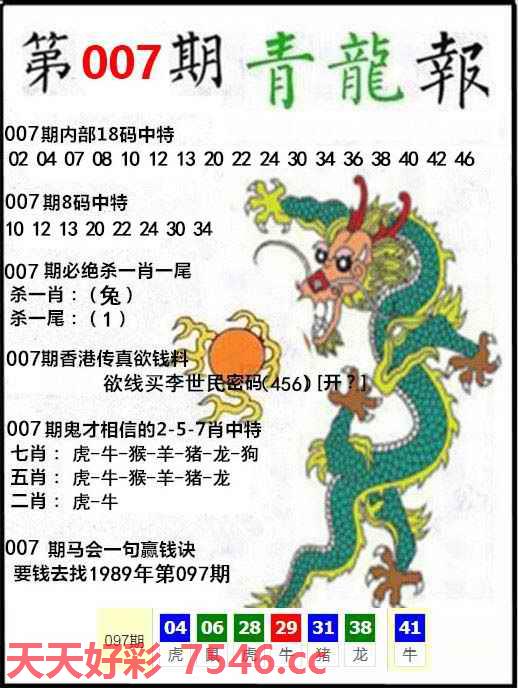 第007期青龍報
007期内部18码中特
02 04 07 08 10 12 13 20 22 24 30 34 36 38 40 42 46
007期8码中特
10 12 13 20 22 24 30 34
007 期必绝杀一肖一尾
杀一肖：(兔)
杀一尾：(1)
007期香港传真欲钱料
欲线买李世民密码(456) [开?]
007期鬼才相信的2-5-7肖中特
七肖：虎-牛-猴-羊-猪-龙-狗
五肖：虎-牛-猴-羊-猪-龙
二肖：虎-牛
007 期马会一句赢钱诀
要钱去找1989年第097期
097期 04 06 28 29 31 38 41
虎 鼠 虎 牛 猪 龙 牛
天天好彩 7546.cc